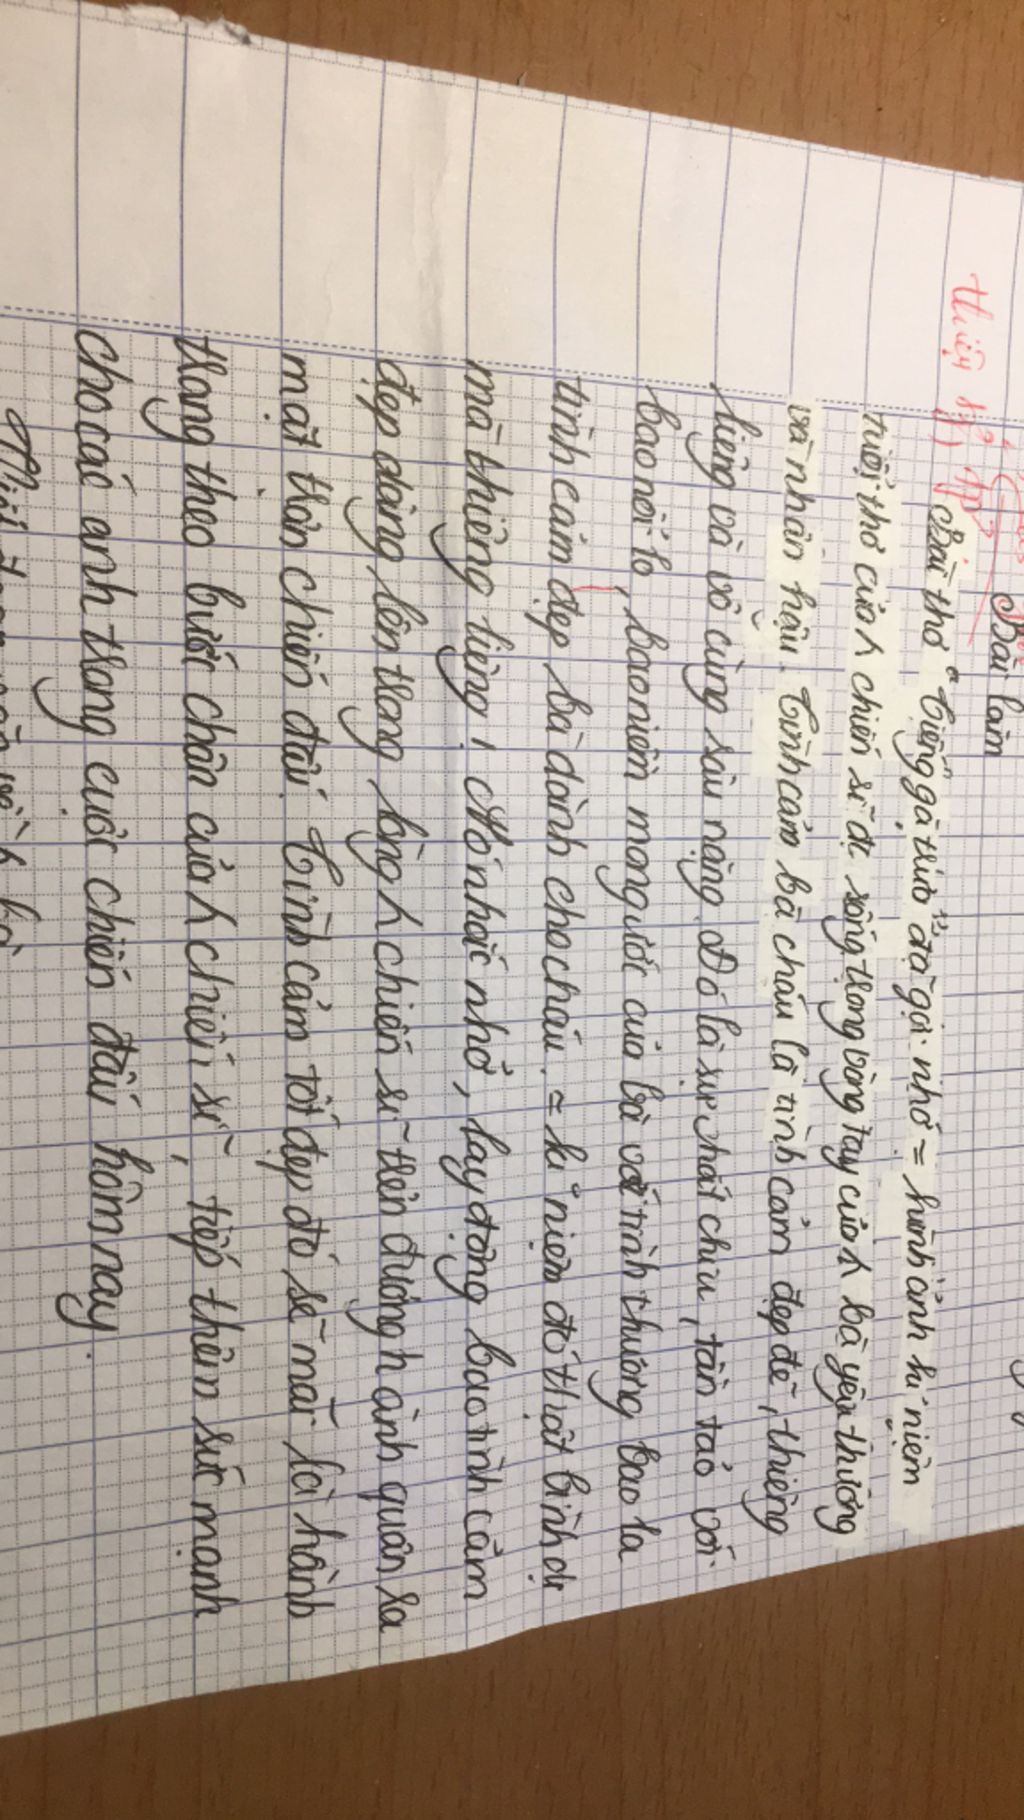 Bài làm
Bài thơ "Tiếng gà trưa" đã gợi nhớ = hình ảnh kỉ niệm
tuổi thơ của λ chiến sĩ đc sống trong vòng tay của λ bà yêu thương
và nhân hậu. Tình cảm bà cháu là tình cảm đẹp đẽ, thiêng
liêng và vô cùng sâu nặng. Đó là sự chắt chiu, tần tảo với
bao nỗi lo, bao niềm mong ước của bà với tình thương bao la
tình cảm đẹp bà dành cho cháu. = kỉ niệm đó thật bình dị
mà thiêng liêng! Nó nhắc nhở, lay động bao tình cảm
đẹp dâng lên trong lòng λ chiến sĩ trên đường hành quân ra
mặt trận chiến đấu. Tình cảm tốt đẹp đó sẽ mãi là hành
trang theo bước chân của λ chiến sĩ, tiếp thêm sức mạnh
cho các anh trong cuộc chiến đấu hôm nay.